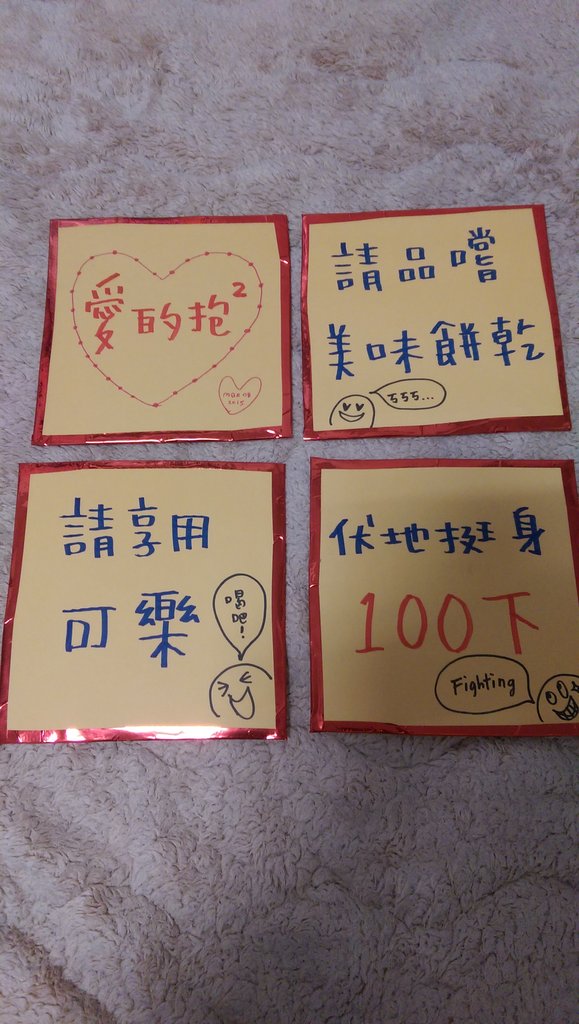 愛的抱²
MAR 08
2015
請品嚐
美味餅乾
ㄎㄎㄎ...
請享用
可樂
喝
吧!
伏地挺身
100下
Fighting